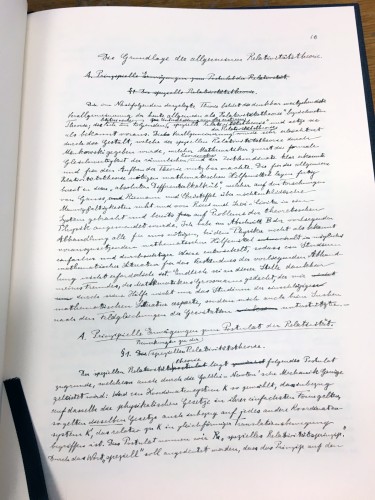 18
Die Grundlage der allgemeinen Relativitätstheorie.
A. Prinzipielle Erwägungen zum Postulat der Relativität.
§1. Die spezielle Relativitätstheorie.
Die im Nachfolgenden dargelegte Theorie bildet die denkbar weitgehendste
Verallgemeinerung der heute allgemein als "Relativitätstheorie" bezeichneten
Theorie; "spezielle Relativitätstheorie" und setze sie
als bekannt voraus. Die Verallgemeinerung der Relativitätstheorie wurde sehr erleichtert
durch die Gestalt, welche der speziellen Relativitätstheorie durch
Minkowski gegeben wurde, welcher Mathematiker zuerst die formale
Gleichwertigkeit der räumlichen und der Zeitkoordinate klar erkannte
und für den Aufbau der Theorie nutzbar machte. Die für die allgemeine
Relativitätstheorie nötigen mathematischen Hilfsmittel lagen fertig
bereit in dem "absoluten Differentialkalkül", welcher auf den Forschungen
von Gauss, Riemann und Christoffel über nichteuklidische
Mannigfaltigkeiten ruht und von Ricci und Levi-Civita in ein
System gebracht und bereits auf Probleme der theoretischen
Physik angewendet wurde. Ich habe im Abschnitt B der vorliegenden
Abhandlung alle für uns nötigen, bei dem Physiker nicht als bekannt
vorauszusetzenden mathematischen Hilfsmittel in möglichst
einfacher und durchsichtiger Weise entwickelt, sodass ein Studium
mathematischer Literatur für das Verständnis der vorliegenden Abhand-
lung nicht erforderlich ist. Endlich sei an dieser Stelle dankbar
meines Freundes, des Mathematikers Grossmann gedacht, der mir
durch seine Hilfe nicht nur das Studium der einschlägigen
mathematischen Literatur ersparte, sondern mich auch beim Suchen
nach den Feldgleichungen der Gravitation unterstützte.
A. Prinzipielle Erwägungen zum Postulat der Relativität.
§1. Die spezielle Relativitätstheorie.
Der speziellen Relativitätstheorie liegt folgendes Postulat
zugrunde, welchem auch durch die Galilei-Newton'sche Mechanik Genüge
geleistet wird: Wird ein Koordinatensystem K so gewählt, dass inbezug
auf dasselbe die physikalischen Gesetze in ihrer einfachsten Form gelten,
so gelten dieselben Gesetze auch inbezug auf jedes andere Koordinaten-
system K', das relativ zu K in gleichförmiger Translationsbewegung
begriffen ist. Dies Postulat nennen wir "spezielles Relativitätsprinzip".
Durch das Wort "speziell" soll angedeutet werden, dass das Prinzip auf den